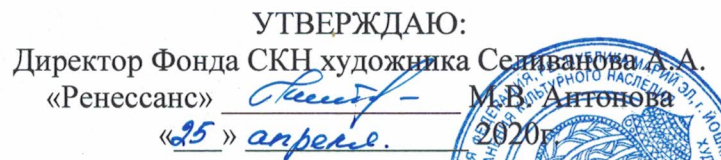 УТВЕРЖДАЮ:
Директор Фонда СКН художника Селиванова А.А.
«Ренессанс» М.В. Антонова
«25» апреля. 2020г.